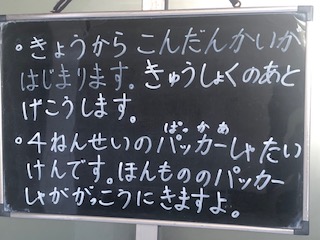 ・きょうから こんだんかいが
はじまります。きゅうしょくのあと
げこうします。
・4ねんせいのパッカーしゃたい
ぱっかあ
けんです。ほんもののパッカー
しゃががっこうにきますよ。